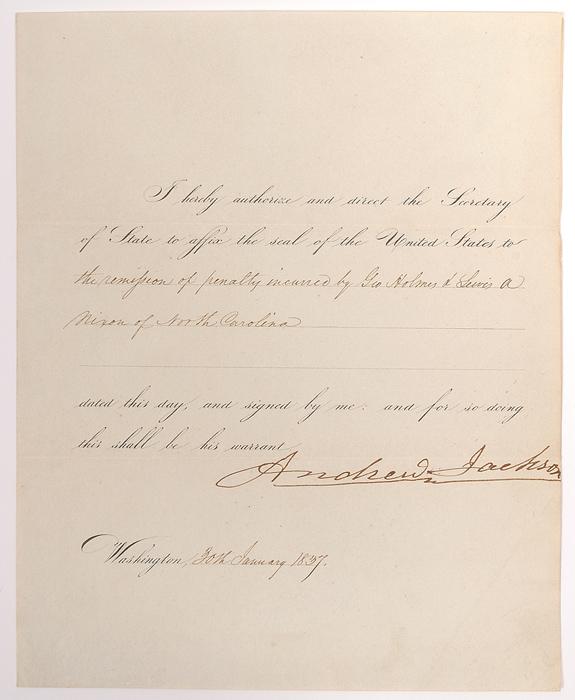 I hereby authorize and direct the Secretary
of State to affix the seal of the United States to
the remission of penalty incurred by Geo Holmes & Lewis A
Nixon of North Carolina
dated this day, and signed by me: and for so doing
this shall be his warrant
Andrew Jackson
Washington, 30th January 1837.